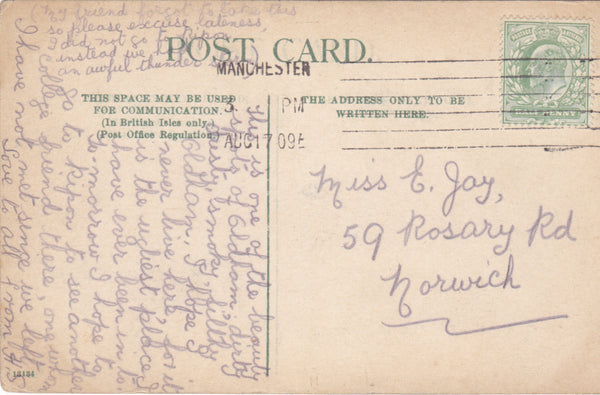 (My friend forgot to take this
so please excuse lateness,
I did not go to Ripon
instead we had
an awful thunder storm)
POST CARD.
MANCHESTER
5. PM
AUG 17 09
HALFPENNY
THIS SPACE MAY BE USED
FOR COMMUNICATION.
(In British Isles only.)
(Post Office Regulation).
THE ADDRESS ONLY TO BE
WRITTEN HERE.
This is one of the beauty
spots of Oldham, dirty
nasty smoky, filthy
Oldham. I hope I
never live here, for it
is the ugliest place I
have ever been in to.
To-morrow I hope to
go to Ripon to see another
College friend there, one whom
I have not met since we left.
Love to all from
Miss E. Jay,
59 Rosary Rd
Norwich